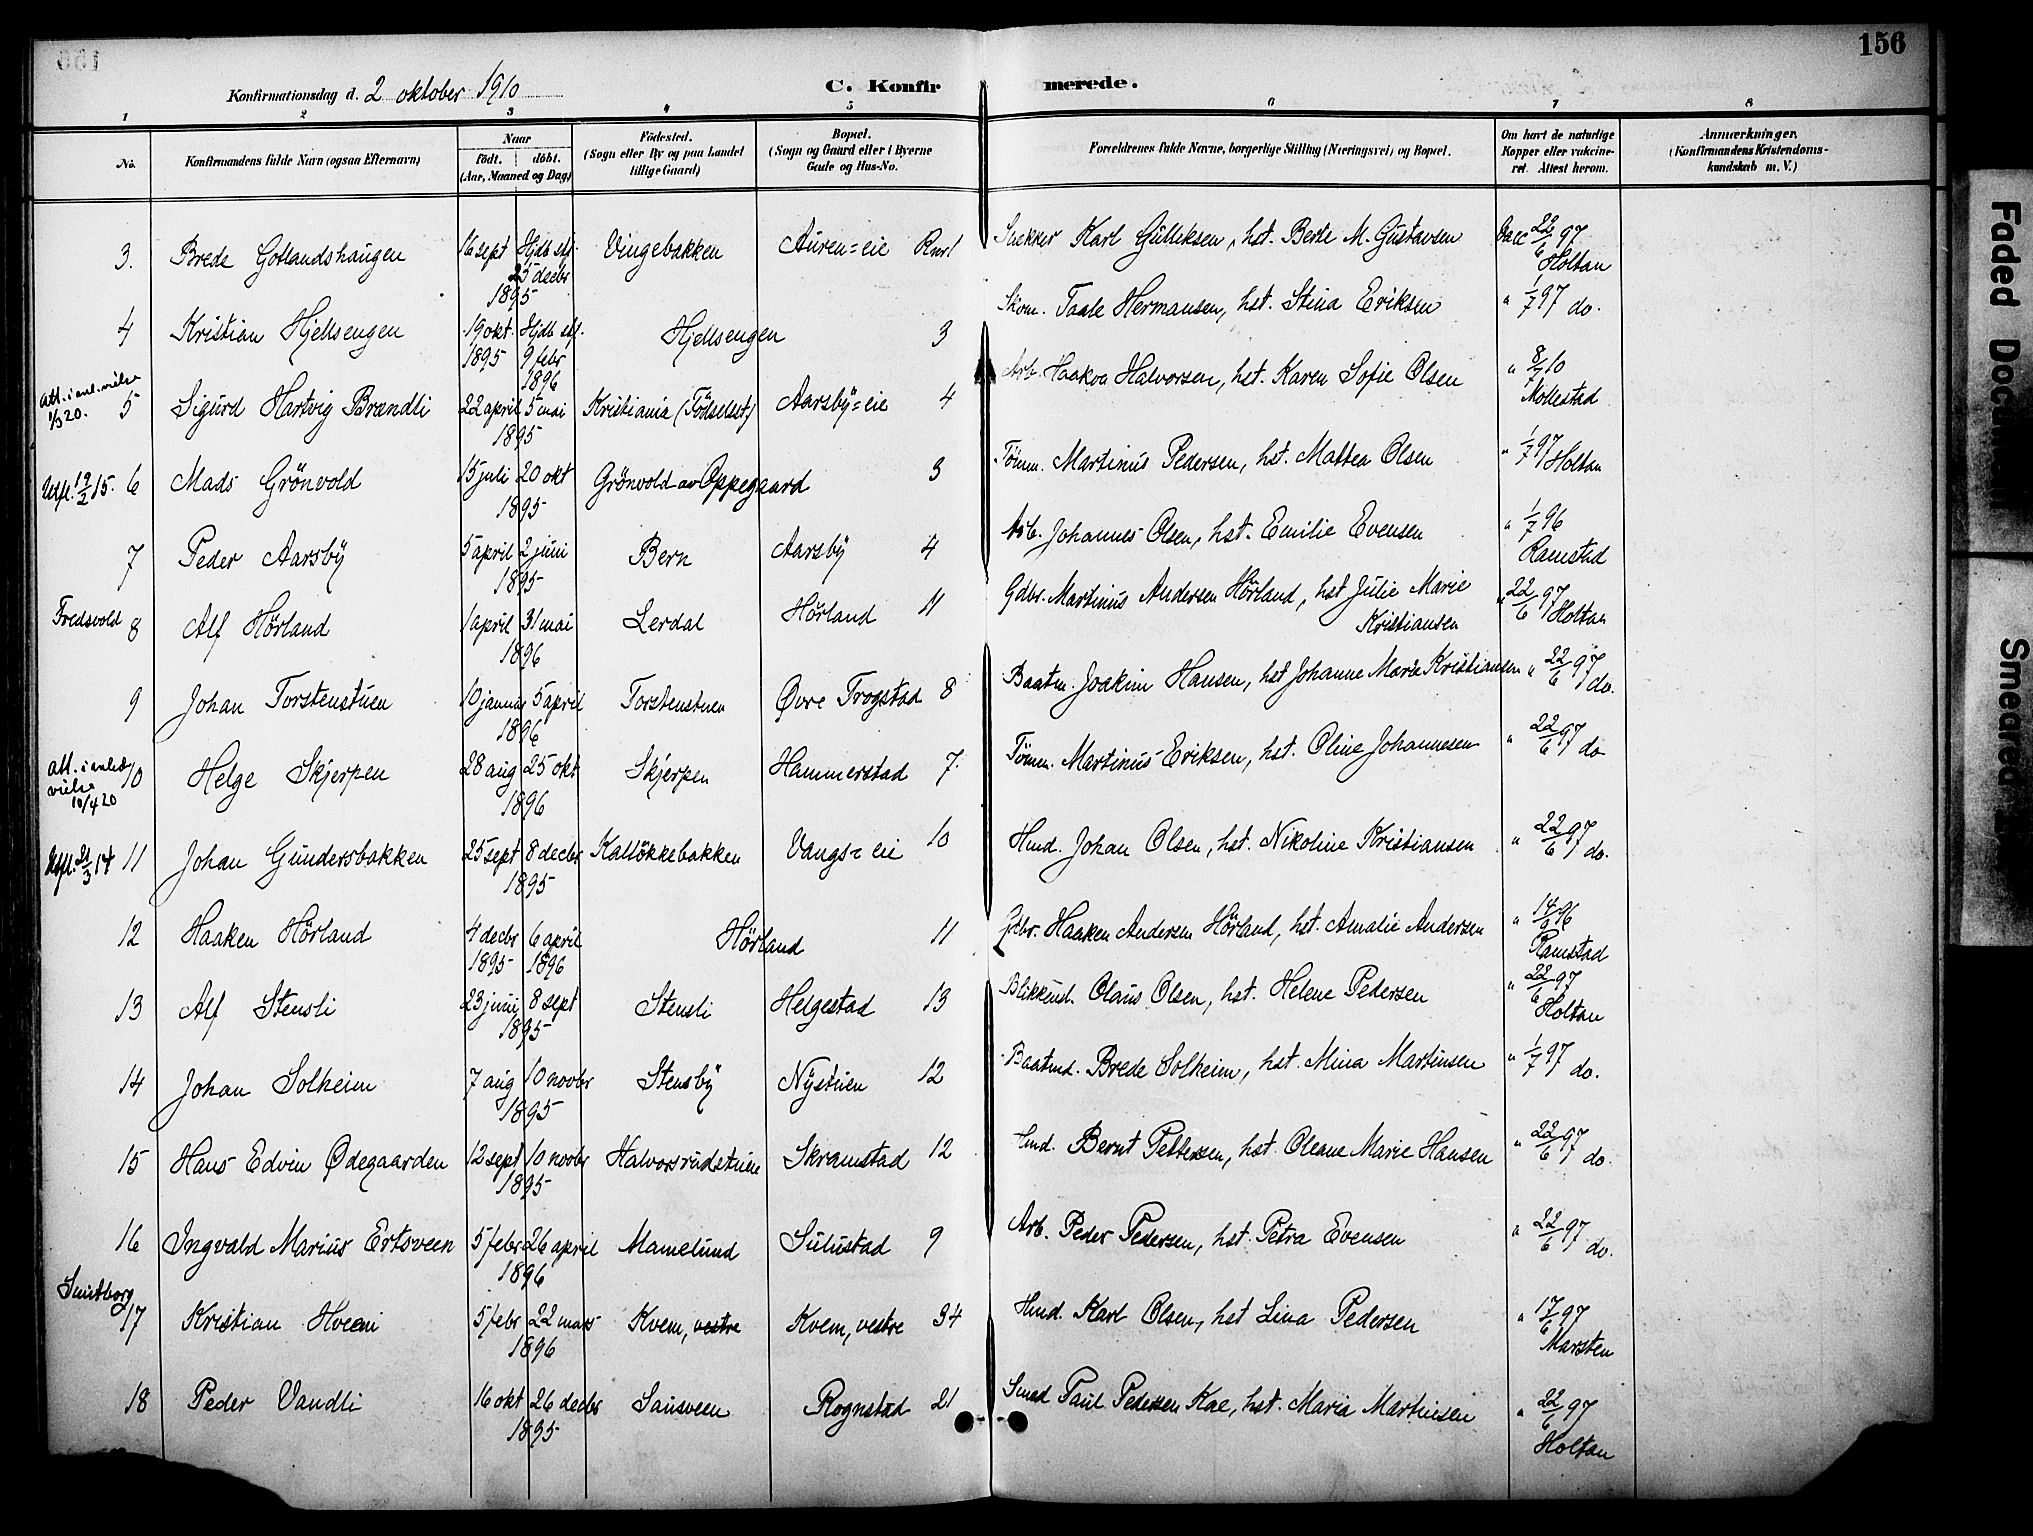 156
Konfirmationsdag d. 2 oktober 1910
C. Konfirmerede.
1 2 3 4 5 6 7 8
No.
Konfirmandens fulde Navn (ogsaa Efternavn)
Naar
födt. döbt.
(Aar, Maaned og Dag)
Födested.
(Sogn eller By og paa Landet
tillige Gaard)
Bopæl.
(Sogn og Gaard eller i Byerne
Gade og Hus-No.
Forældrenes fulde Navne, borgerlige Stilling (Næringsvei) og Bopæl.
Om havt de naturlige
Kopper eller vakcine-
ret. Attest herom.
Anmærkninger.
(Konfirmandens Kristendoms-
kundskab m. V.)
3. Brede Gotlandshaugen 16 sept Hjdb stf. 25 decbr 1895 Vingebakken Auren=eie Karl Gulliksen, hst. Berte M. Gustavsen Vacc 22/6 97 Holtan
4 Kristian Hjellsengen 19 okt 1895 Hjdb stf. 9 febr 1896 Hjellsengen 3 Skom. Taale Hermansen, hst. Stina Eriksen " 1/7 97 do.
5 Sigurd Hartvig Brændli 22 april 5 mai 1895 Kristiania (Födselsst) Aarsby=eie 4 Arb. Haakon Halvorsen, hst. Karen Sofie Olsen " 8/7 10 Mollestad
Utfl. 12/2 15. 6 Mads Grönvold 15 juli 20 okt 1895 Grönvold av Oppegaard 3 Tömm. Martinus Pedersen, hst. Mattea Olsen " 1/7 97 Holtan
7 Peder Aarsby 5 april 2 juni 1895 Bern Aarsby 4 Arb. Johannes Olsen, hst. Emilie Evensen " 1/7 96 Ramstad
Fredsvold 8 Alf Hörland 1 april 31 mai 1896 Lerdal Hörland 11 Gdbr. Martinus Andersen Hörland, hst Julie Marie Kristiansen " 22/6 97 Holtan
9 Johan Torstenstuen 10 januar 5 april 1896 Torstenstuen Øvre Trogstad 8 Baatm. Joakim Hansen, hst Johanne Marie Kristiansen " 22/6 97 do.
10/4 20 10 Helge Skjerpen 28 aug 25 okt 1896 Skjerpen Hammerstad 7. Tömm. Martinus Eriksen, hst. Oline Johannesen " 22/6 97 do
Utfl. 21/3 14 11 Johan Gundersbakken 25 sept 8 decbr 1895 Kallökkebakken Vangs=eie 10 Hmd. Johan Olsen, hst. Nikoline Kristiansen " 22/6 97 do.
12 Haaken Hörland 4 decbr 1895 6 april 1896 Hörland 11 Gdbr. Haaken Andersen Hörland, hst. Amalie Andersen " 14/6 96 Ramstad
13 Alf Stensli 23 juni 8 sept 1895 Stensli Helgestad 13 Blikksmd. Olaus Olsen, hst. Helene Pedersen " 22/6 97 Holtan
14 Johan Solheim 7 aug 10 novbr 1895 Stensby Nystuen 12 Baatmd. Brede Solheim, hst. Mina Martinsen " 1/7 97 do.
15 Hans Edvin Ødegaarden 12 sept 10 novbr 1895 Halvorsrudstuen Skramstad 12 Hmd. Bernt Pettersen, hst. Oleane Marie Hansen " 22/6 97 do.
16 Ingvald Marius Ertsveen 5 febr 26 april 1896 Mamelund Sulustad 9 Arb. Peder Pedersen, hst. Petra Evensen " 22/6 97 do.
Smitborg 17 Kristian Hveem 5 febr 22 mars 1896 Kvem, vestre Kvem, vestre 34 Hmd. Karl Olsen, hst Lina Pedersen " 17/6 97 Marsten
18 Peder Vandli 16 okt 26 decbr 1895 Sausveen Rognstad 21 Smed Paul Pedersen Kae, hst. Maria Martinsen " 22/6 97 Holtan
Faded Doc
Smeared